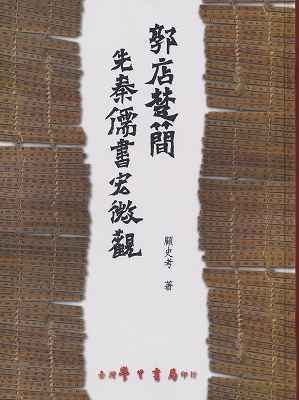 郭店楚簡
先秦儒書宏微觀
顧史考 著
臺灣學生書局印行